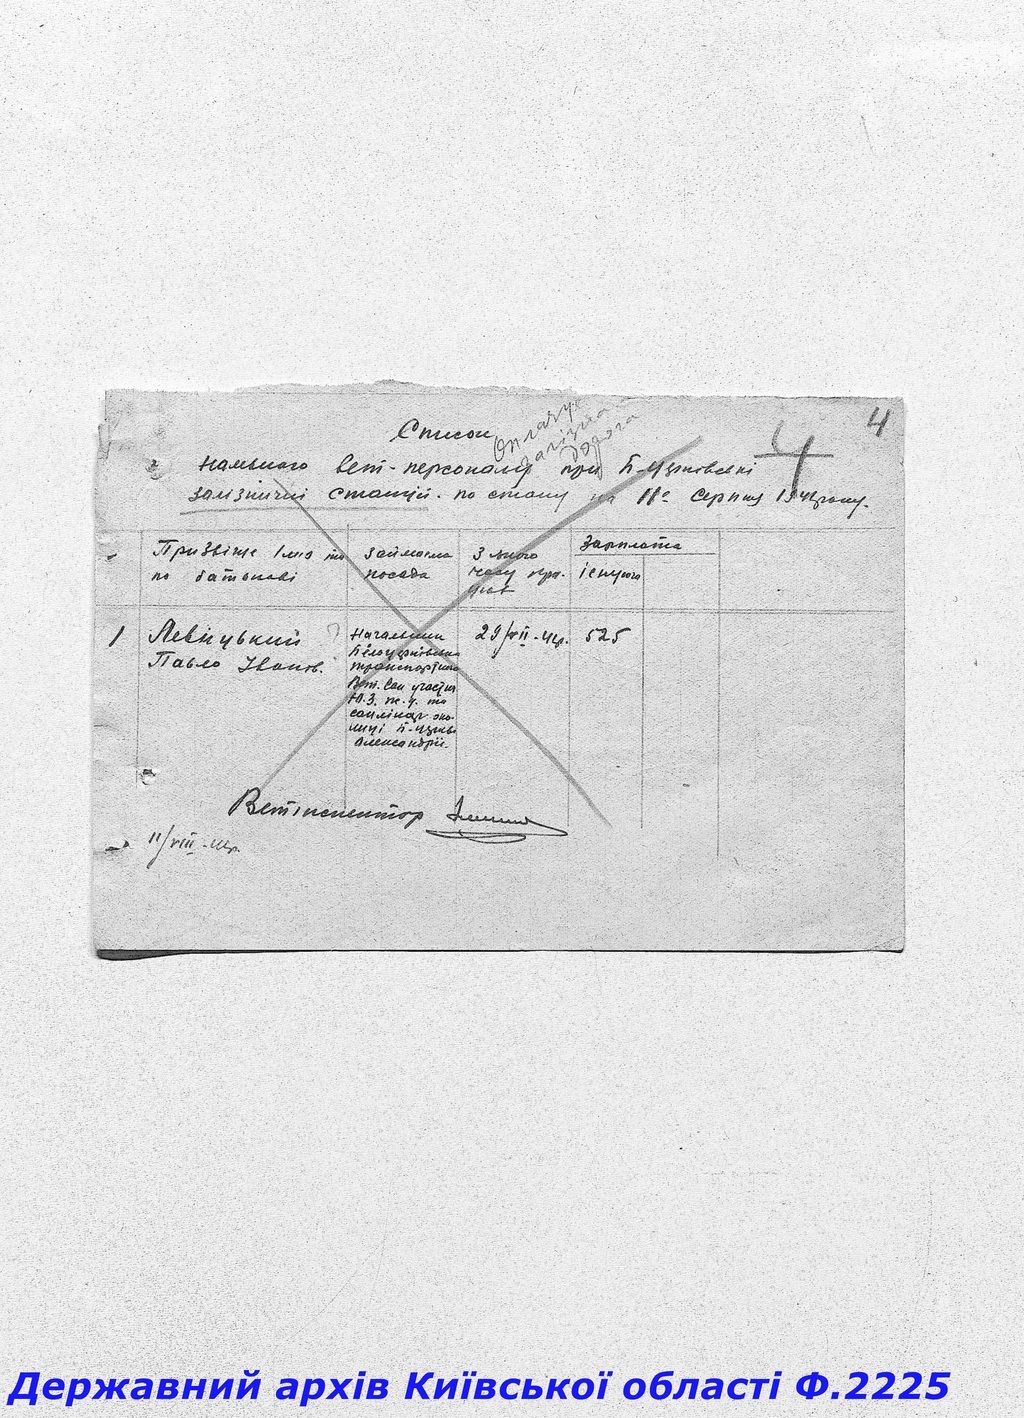 4
4
Список
Оплачує
залізна
дорога
наявного вет-персоналу при Б-Церковські
залізничні станції по стану на 11го серпня 1941 року.
Призвіще Імя та по батькові
Займаєма посада
З якого часу пра-цює
Зарплата
існуюча
1
Левіцький
Павло Іванов.
Начальник
Білоцерківськ
транспортного
Вет. Сан участка
Ю.З. ж.д. та
Б-Церкв
Александрії.
29/VII-41р.
525
Ветінспектор
11/VIII-41р.
Державний архів Київської області Ф.2225